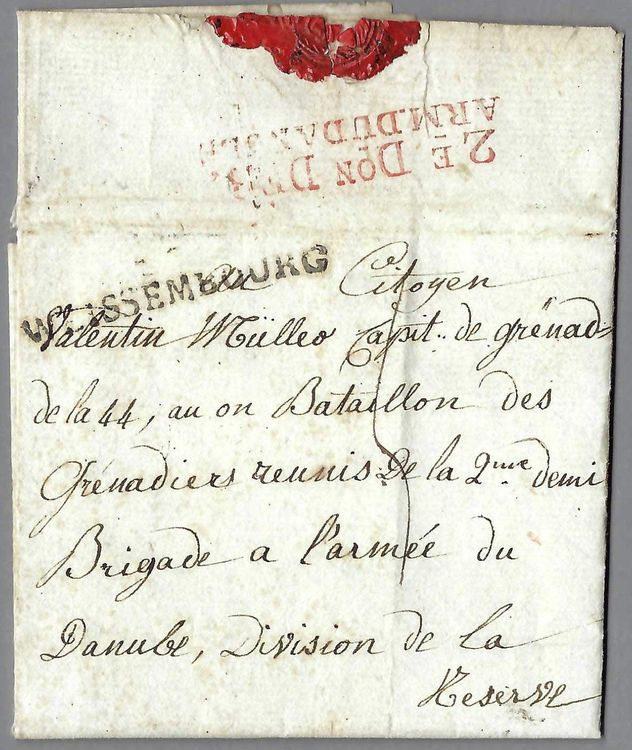 2E. DON
ARM. DU DA
WEISSEMBOURG
Au Citoyen
Valentin Mülleo Capit. de grénad=
de la 44, au on Bataillon des
Grénadiers reunis de la 2me demi
Brigade a l'armée du
Danube, Division de la
Reserve